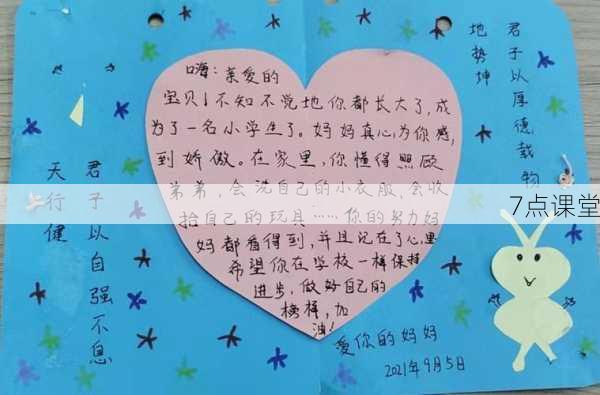 嗨：亲爱的
宝贝！不知不觉地你都长大了，成
为了一名小学生了。妈妈真心为你感
到娇傲。在家里，你懂得照顾
弟弟，会洗自己的小衣服，会收
拾自己的玩具……你的努力妈
妈都看得到，并且记在了心里
希望你在学校一样保持
进步，做好自己的
榜样，加
油！
爱你的妈妈
2021年9月5日
天行健
君子以自强不息
地势坤
君子以厚德载物
7点课堂